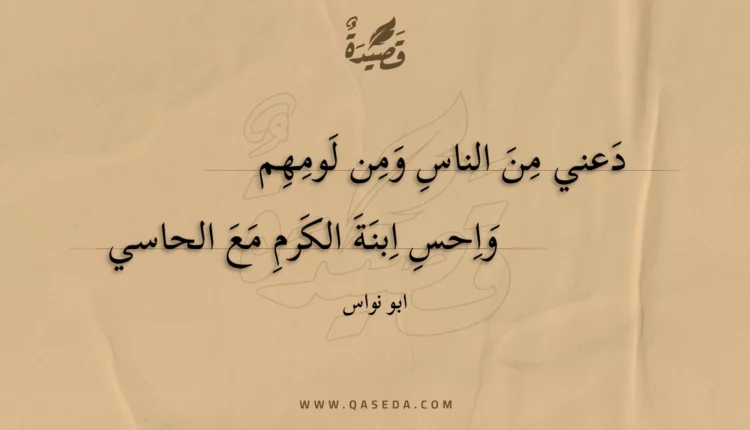 قَصِيدَةٌ
دَعني مِنَ الناسِ وَمِن لَومِهِم
وَاِحسِ اِبنَةَ الكَرمِ مَعَ الحاسي
ابو نواس
WWW.QASEDA.COM